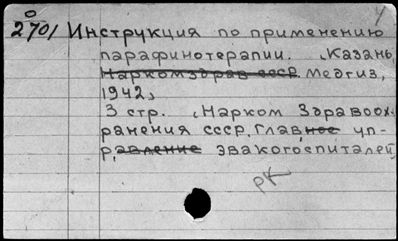 4
2701 Инструкция по применению
парафинотерапии. Казань,
Наркомздрав ссср. Медгиз,
1942,
3 стр. (Нарком Здравоох-
ранения ссср. Главное уп-
р.авление эвакогоспиталей)
рк